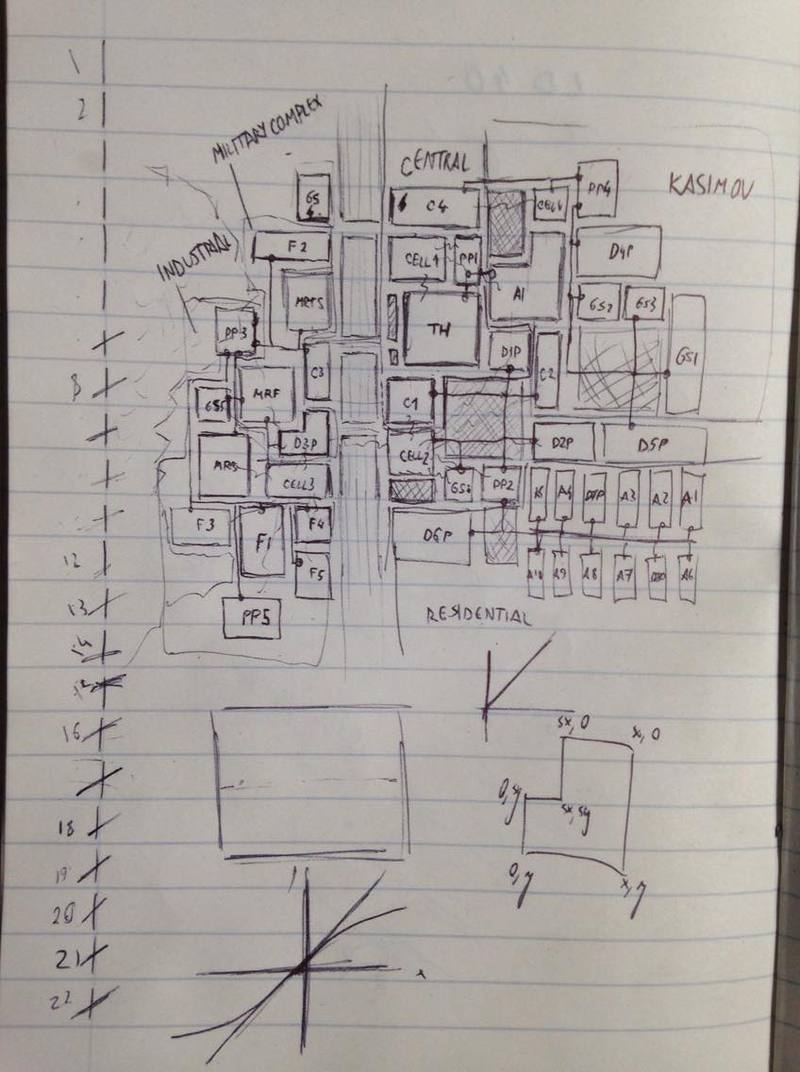 1
2
MILITARY COMPLEX
CENTRAL
KASIMOV
INDUSTRIAL
GS
C4
CELL4
PP4
F2
CELL1
PP1
D4P
MRF5
A1
GS2
GS3
PP3
TH
D1P
C2
GS1
C3
8
MRF
C1
GS5
D3P
CELL2
D2P
D5P
CELL3
GS4
PP2
A5
A4
A3
A2
A1
F3
F1
F4
D6P
12
F5
A10
A9
A8
A7
A6
13
PP5
RESIDENTIAL
14
16
sx, 0
x, 0
0, sy
sx, sy
18
19
0, y
x, y
20
21
x
22